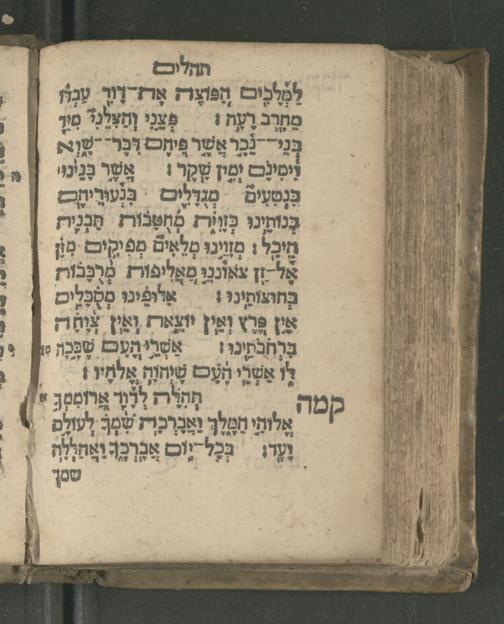 תהלים
לַמְּלָכִים הַפּוֹצֶה אֶת־דָּוִד עַבְדּוֹ
מֵחֶרֶב רָעָה׃ פְּצֵנִי וְהַצִּילֵנִי מִיַּד
בְּנֵי־נֵכָר אֲשֶׁר פִּיהֶם דִּבֶּר־שָׁוְא
וִימִינָם יְמִין שָׁקֶר׃ אֲשֶׁר בָּנֵינוּ
כִּנְטִעִים מְגֻדָּלִים בִּנְעוּרֵיהֶם
בְּנוֹתֵינוּ כְזָוִיֹּת מְחֻטָּבוֹת תַּבְנִית
הֵיכָל׃ מְזָוֵינוּ מְלֵאִים מְפִיקִים מִזַּן
אֶל־זַן צֹאונֵנוּ מַאֲלִיפוֹת מְרֻבָּבוֹת
בְּחוּצוֹתֵינוּ׃ אַלּוּפֵינוּ מְסֻבָּלִים
אֵין פֶּרֶץ וְאֵין יוֹצֵאת וְאֵין צְוָחָה
בִּרְחֹבֹתֵינוּ׃ אַשְׁרֵי הָעָם שֶׁכָּכָה
לּוֹ אַשְׁרֵי הָעָם שֶׁיְהוָה אֱלֹהָיו׃
קמה תְּהִלָּה לְדָוִד אֲרוֹמִמְךָ
אֱלוֹהַי הַמֶּלֶךְ וַאֲבָרְכָה שִׁמְךָ לְעוֹלָם
וָעֶד׃ בְּכָל־יוֹם אֲבָרְכֶךָּ וַאֲהַלְלָה
שמך